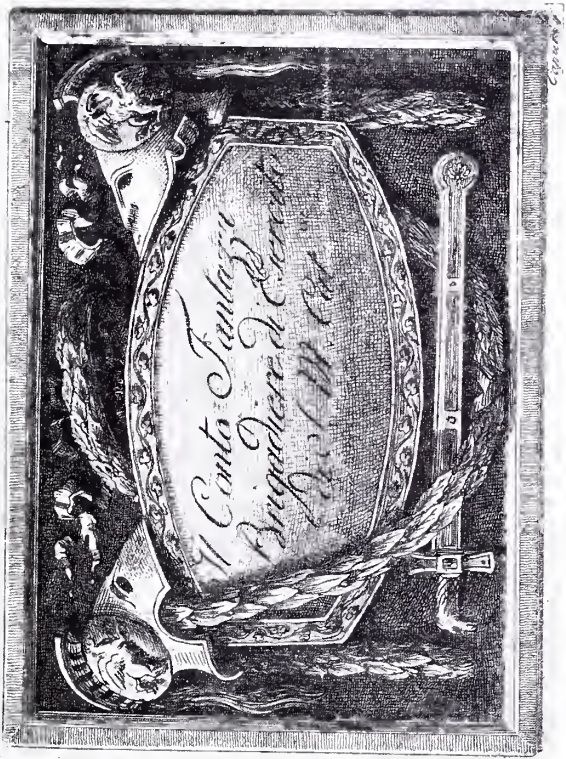 Il Conte Fantuzzi
Brigadiere di Esercito
di S. M. Cat